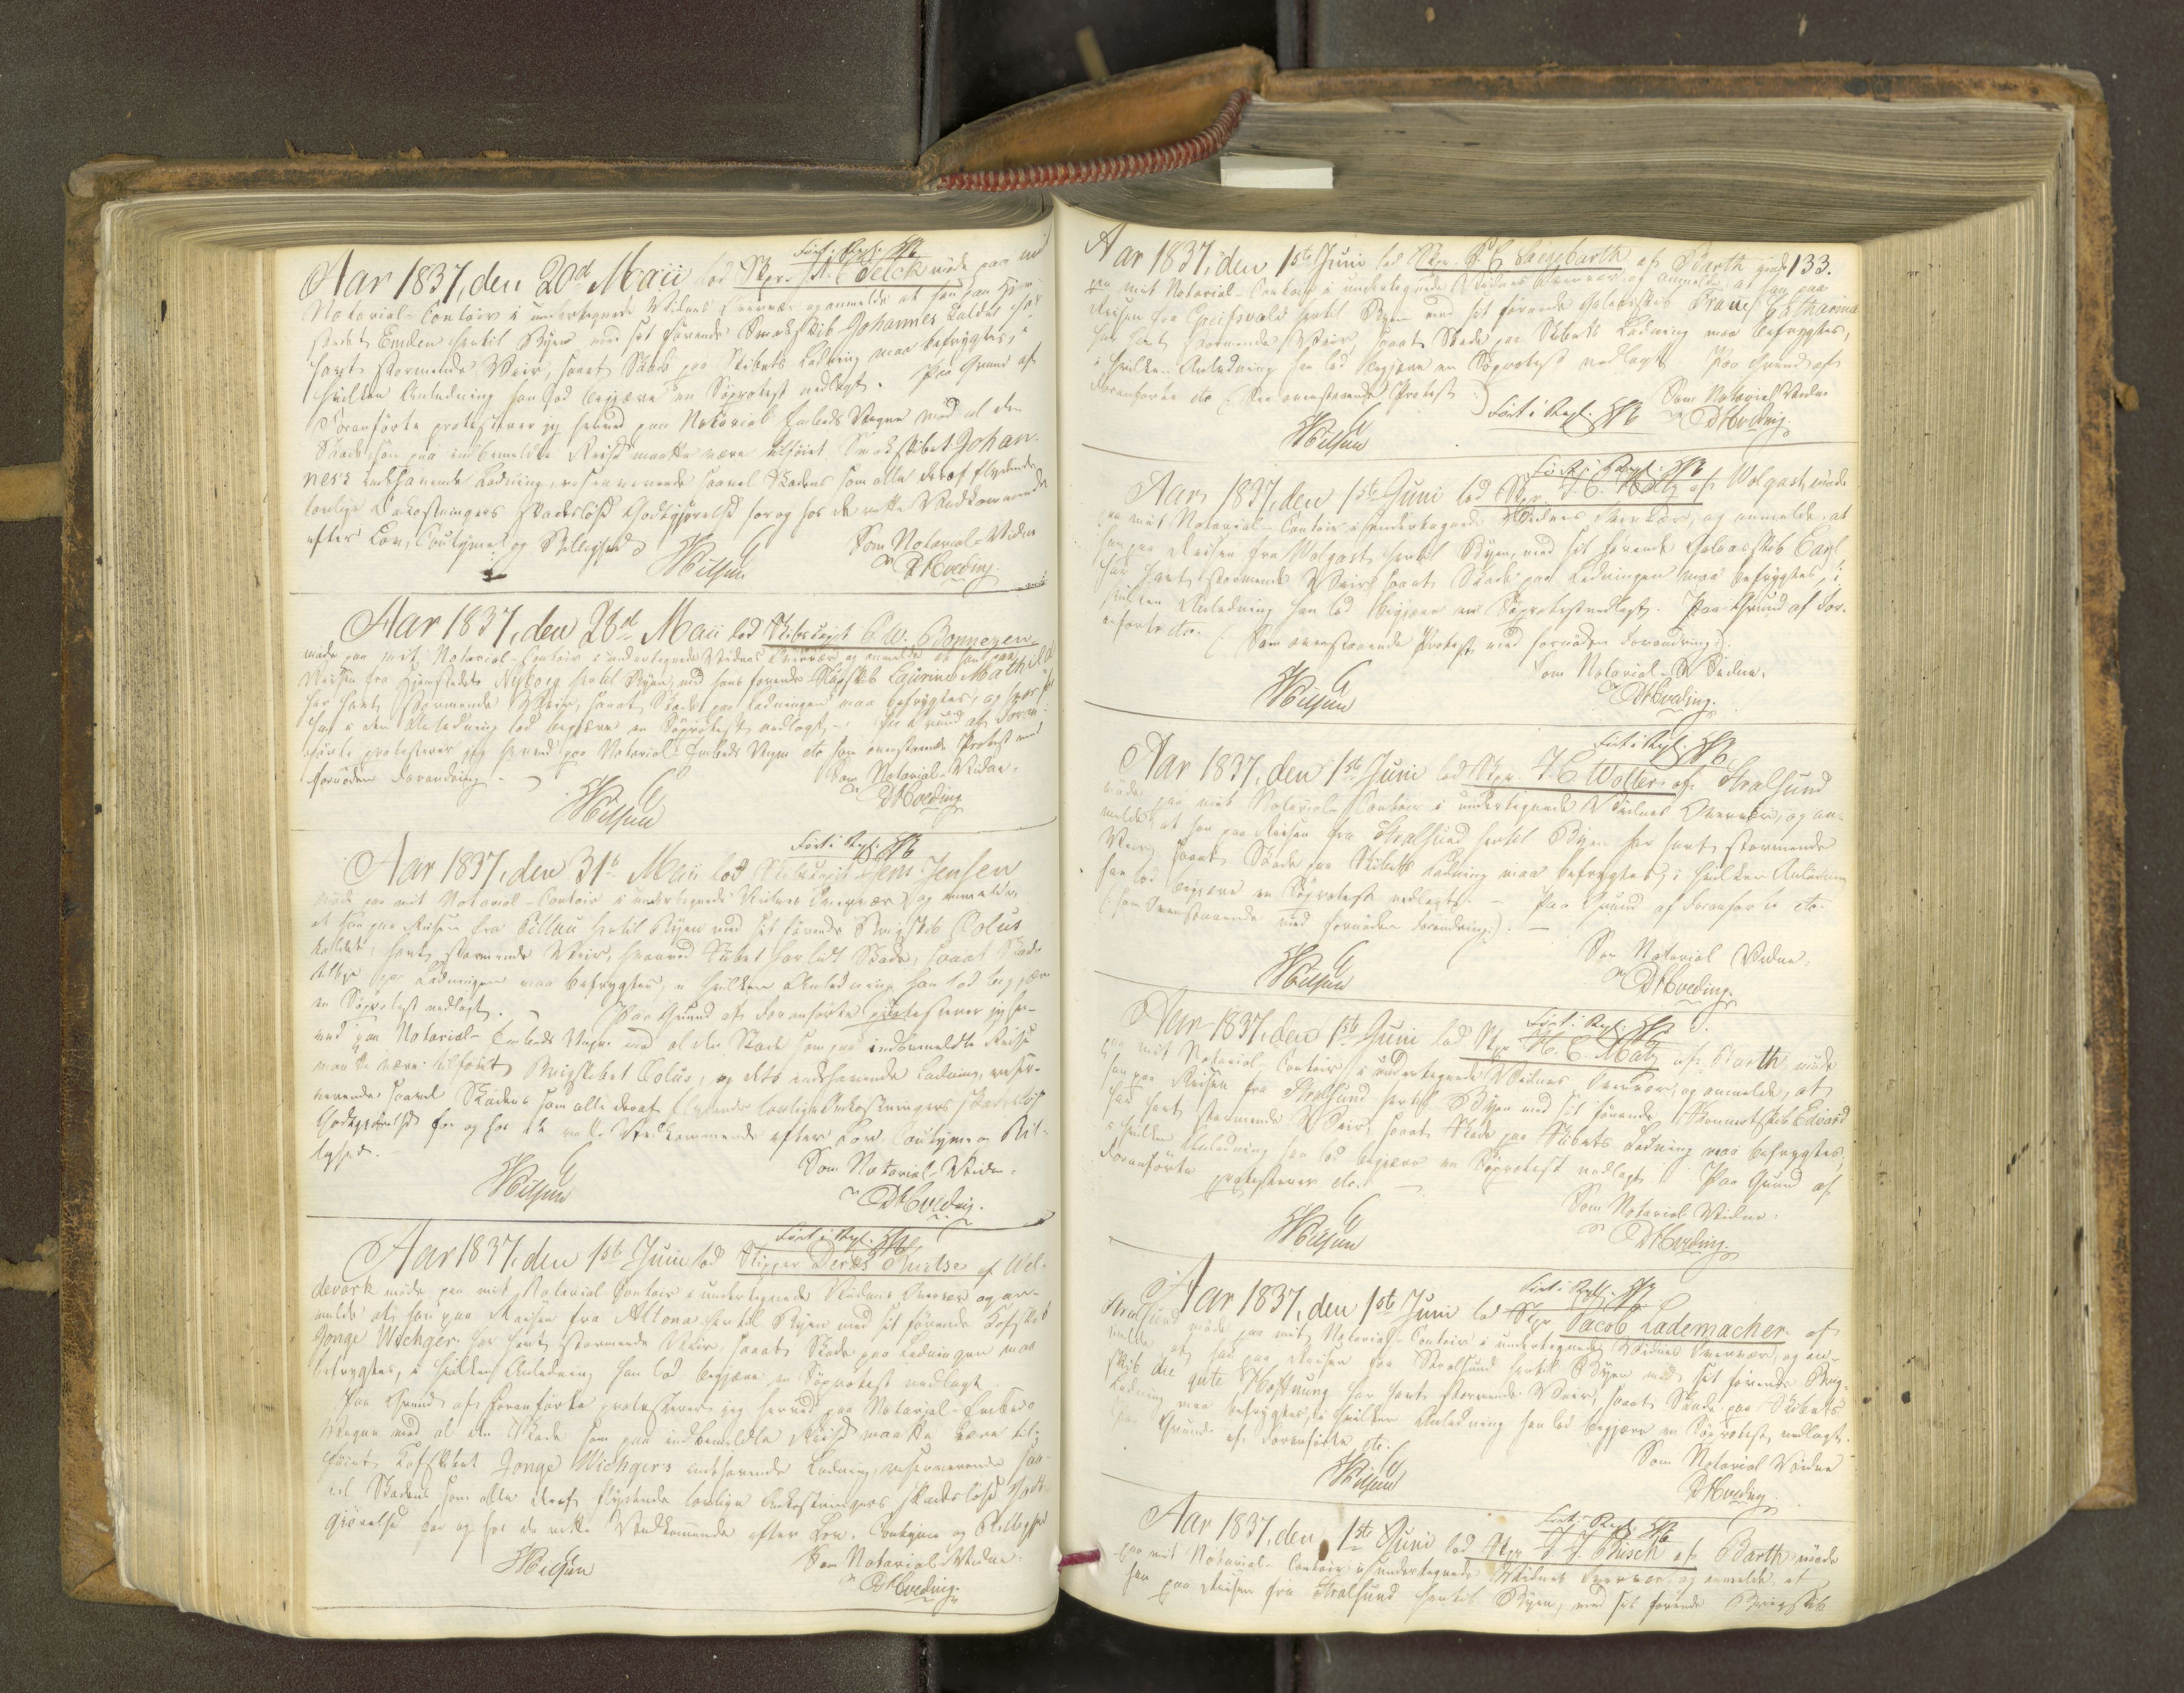 Ført i Regl.
Aar 1837, den 20d Maii lod Skpr. møde paa mit
Notarial-Contoir i undertegnede Vidnes Overvær og anmelde at han paa
stedet Emden hertil Byen med sit førende Smakskib Johannes kaldet har
havt stormende Veir, saaat Skade paa Skibets Ladning maa befrygtes, i
hvilken Anledning han lod begjære en Søprotest nedlagt. Paa Grund af
Foranførte protesterer jeg herved paa Notarial Embeds Vegne mod al den
Skade, som paa indbemeldte Reise maatte være tilføiet Smakskibet Johan-
nes's indehavende Ladning, reserverende saavel Skadens som alle deraf flydende
lovlige Omkostningers skadesløse Godtgjørelse for og hos de rette Vedkommende
efter Lov, Coutyme og Billighed
Som Notarial-Vidne
Aar 1837, den 28d Maii lod Skibscapt. C. W. Bonnezen
møde paa mit Notarial-Contoir i undertegnede Vidnes Overvær og anmelde at han paa
Reisen fra Hjemstedet Nyborg hertil Byen, med hans førende Skib Laurine Mathilde
har havt stormende Veir, saaat Skade paa Ladningen maa befrygtes, og
han i den Anledning lod begjære en Søprotest nedlagt. Paa Grund af Foran-
førte protesterer jeg herved paa Notarial-Embeds Vegne etc som ovenstaaende Protest med
fornøden Forandring.
Som Notarial-Vidne.
Ført i Regl.
Aar 1837, den 31te Maii lod Skibscapt. Jens Jensen
møde paa mit Notarial-Contoir i undertegnede Vidnes Overvær og anmelde,
at han paa Reisen fra Pillau hertil Byen med sit førende Brigskib Æolus
kaldet, havt stormende Veir, hvorved Skibet har lidt Skade, saaat Skade
paa Ladningen maa befrygtes, i hvilken Anledning han lod begjære
en Søprotest nedlagt. Paa Grund af Foranførte protesterer jeg her-
ved paa Notarial-Embeds Vegne mod al den Skade som paa indbemeldte Reise
maatte være tilføiet Brigskibet Æolus, og dets indehavende Ladning, reser-
verende saavel Skadens som alle deraf flydende lovlige Omkostningers skadesløse
Godtgjørelse for og hos de rette Vedkommende efter Lov, Coutyme og Bil-
lighed.
Som Notarial-Vidne.
Ført i Regl.
Aar 1837, den 1ste Juni lod Skipper af Wel-
devark møde paa mit Notarial Contoir i undertegnede Vidnes Overvær og an-
melde at han paa Reisen fra Altona hertil Byen med sit førende Kofskib
Jonge Wichger har havt stormende Veir, saaat Skade paa Ladningen maa
befrygtes, i hvilken Anledning han lod begjære en Søprotest nedlagt.
Paa Grund af Foranførte protesterer jeg herved paa Notarial-Embeds
Vegne mod al den Skade som paa indbemeldte Reise maatte være til-
føiet Kofskibet Jonge Wichgers indehavende Ladning, reserverende saa-
vel Skadens som alle deraf flydende lovlige Omkostningers skadesløse Godt-
gjørelse for og hos de rette Vedkommende efter Lov, Coutyme og Billighed
Som Notarial-Vidne.
133.
Aar 1837, den 1ste Juni lod Skpr. af Barth møde
paa mit Notarial-Contoir i undertegnede Vidnes Overvær og anmelde at han paa
Reisen fra Greifswald hertil Byen med sit førende Galeasskib Catharina
har havt stormende Veir, saaat Skade paa Skibets Ladning maa befrygtes,
i hvilken Anledning han lod begjære en Søprotest nedlagt. Paa Grund af
Foranførte etc (: See ovenstaaende Protest :)
Som Notarial Vidne
Ført i Regl.
Ført i Regl.
Aar 1837, den 1ste Juni lod Skpr. J. C. Holtz af Wolgast, møde
paa mit Notarial-Contoir i undertegnede Vidnes Overvær, og anmelde, at
han paa Reisen fra Wolgast hertil Byen, med sit førende Galeasskib Carl
har havt stormende Veir saaat Skade paa Ladningen maa befrygtes, i
hvilken Anledning han lod begjære en Søprotest nedlagt. Paa Grund af For-
anførte etc. (: Som ovenstaaende Protest med fornøden Forandring :)
Som Notarial-Vidne.
Ført i Regl.
Aar 1837, den 1ste Juni lod Skpr. J. C. Wolter af Stralsund
møde paa mit Notarial-Contoir i undertegnede Vidnes Overvær, og an-
melde, at han paa Reisen fra Stralsund hertil Byen har havt stormende
Veir, saaat Skade paa Skibets Ladning maa befrygtes, i hvilken Anledning
han lod begjære en Søprotest nedlagt. – Paa Grund af Foranførte etc.
(: som Ovenstaaende med fornøden Forandring :). –
Som Notarial Vidne.
Ført i Regl.
Aar 1837, den 1ste Juni lod Skpr. H. C. Matz af Barth, møde
paa mit Notarial-Contoir i undertegnede Vidnes Overvær, og anmelde, at
han paa Reisen fra Stralsund hertil Byen med sit førende Skonnertskib Edvard
har havt stormende Veir, saaat Skade paa Skibets Ladning maa befrygtes,
i hvilken Anledning han lod begjære en Søprotest nedlagt. Paa Grund af
Foranførte protesterer etc.
Som Notarial Vidne.
Ført i Regl.
Aar 1837, den 1ste Juni lod Skpr. Jacob Lademacher af
Stralsund møde paa mit Notarial-Contoir i undertegnede Vidnes Overvær, og an-
melde at han paa Reisen fra Stralsund hertil Byen med sit førende Brig-
skib die gute Hoffnung har havt stormende Veir, saaat Skade paa Skibets
Ladning maa befrygtes, i hvilken Anledning han lod begjære en Søprotest nedlagt.
Paa Grund af Foranførte etc.
Som Notarial Vidne
Ført i Regl.
Aar 1837, den 1ste Juni lod Skpr. J. J. Busch af Barth møde
paa mit Notarial-Contoir i undertegnede Vidnes Overvær og anmelde at
han paa Reisen fra Stralsund hertil Byen, med sit førende Brigskib